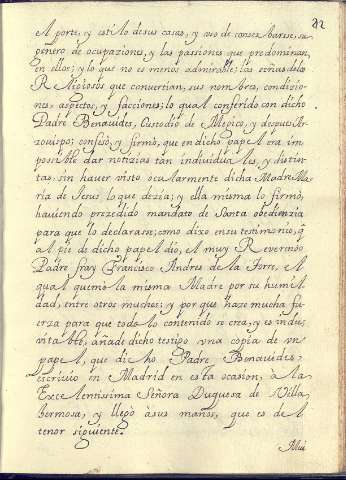 92
el porte, y estilo desus casas, y uso de conserbarse, su
genero de ocupaciones, y las passiones que predominan
en ellos; y lo que no es menos admirable; las señas delos
Religiosos que convertian, sus nombres, condizio-
nes, aspectos, y facciones; lo qual conferido con dicho
Padre Benauides, Custodio de Megico, y despues Ar-
zouispo; confesò, y firmò, que en dicho papel era im-
possible dar notizias tan indiuiduales, y distin-
tas, sin hauer visto ocularmente dicha Madre Ma-
ria de Jesus lo que dezia; y ella misma lo firmò,
hauiendo prezedido mandato de santa obedienzia
para que lo declarasse; como dixo en su testimonio, q
al pie de dicho papel dio, el muy Reverendo
Padre fray Francisco Andres de la Torre, el
qual quemò la misma Madre por su humil
dad, entre otros muchos; y por que haze mucha fu-
erza para que todo lo contenido se crea, y es indu-
vitable, añade dicho testigo vna copia de vn
papel, que dicho Padre Benauides,
escriuio en Madrid en esta ocasion, à la
Excelentissima Señora Duquesa de Villa
hermosa, y llegò à sus manos, que es del
tenor siguiente.
Mui